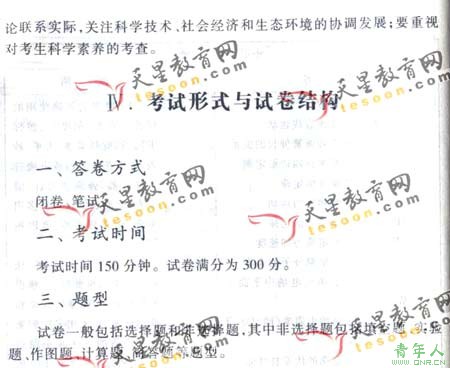 论联系实际,关注科学技术、社会经济和生态环境的协调发展;要重视
对考生科学素养的考查。
天星教育网
tesoon.com
Ⅳ. 考试形式与试卷结构
天星教育网
tesoon.com
一、答卷方式
闭卷、笔试。
天星教育网
tesoon.com
天星教育网
tesoon.com
二、考试时间
考试时间150分钟。试卷满分为300分。
三、题型
天星教育网
tesoon.com
试卷一般包括选择题和非选择题,其中非选择题包括填空题、实验
题、作图题、计算题、简答题等题型。
天星教育网
tesoon.com
天星教育网
tesoon.com
青年人
WWW.QNR.CN